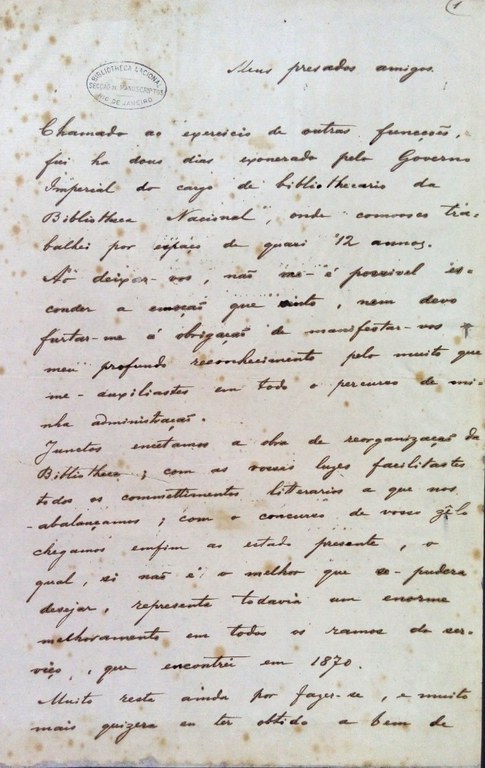 1
BIBLIOTHECA NACIONAL
SECÇÃO DE MANUSCRIPTOS
RIO DE JANEIRO
Meus presados amigos.
Chamado ao exercicio de outras funcções,
fui ha dous dias exonerado pelo Governo
Imperial do cargo de bibliothecario da
Bibliotheca Nacional, onde comvosco tra-
balhei por espaço de quasi 12 annos.
Ao deixar-vos, não me-é possivel es-
conder a emoção que sinto, nem devo
furtar-me á obrigação de manifestar-vos
meu profundo reconhecimento pelo muito que
me-auxiliastes em todo o percurso de mi-
nha administração.
Junctos encetamos a obra de reorganização da
Bibliotheca; com as vossas luzes facilitastes
todos os commettimentos litterarios a que nos
abalançamos; com o concurso de vosso zelo
chegamos emfim ao estado presente, o
qual, si não é o melhor que se-pudera
desejar, representa todavia um enorme
melhoramento em todos os ramos do ser-
viço, que encontrei em 1870.
Muito resta ainda por fazer-se, e muito
mais quizera eu ter obtido a bem de